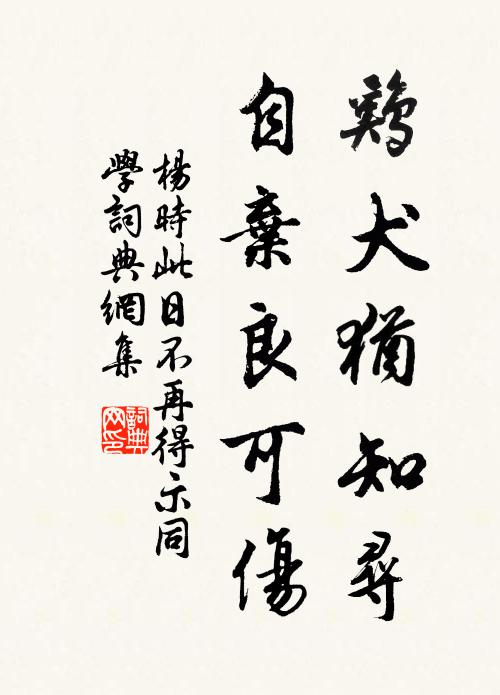 鷄犬猶知尋
自棄良可傷
楊時此日不再得示同
學詞典網集
詞典
网印